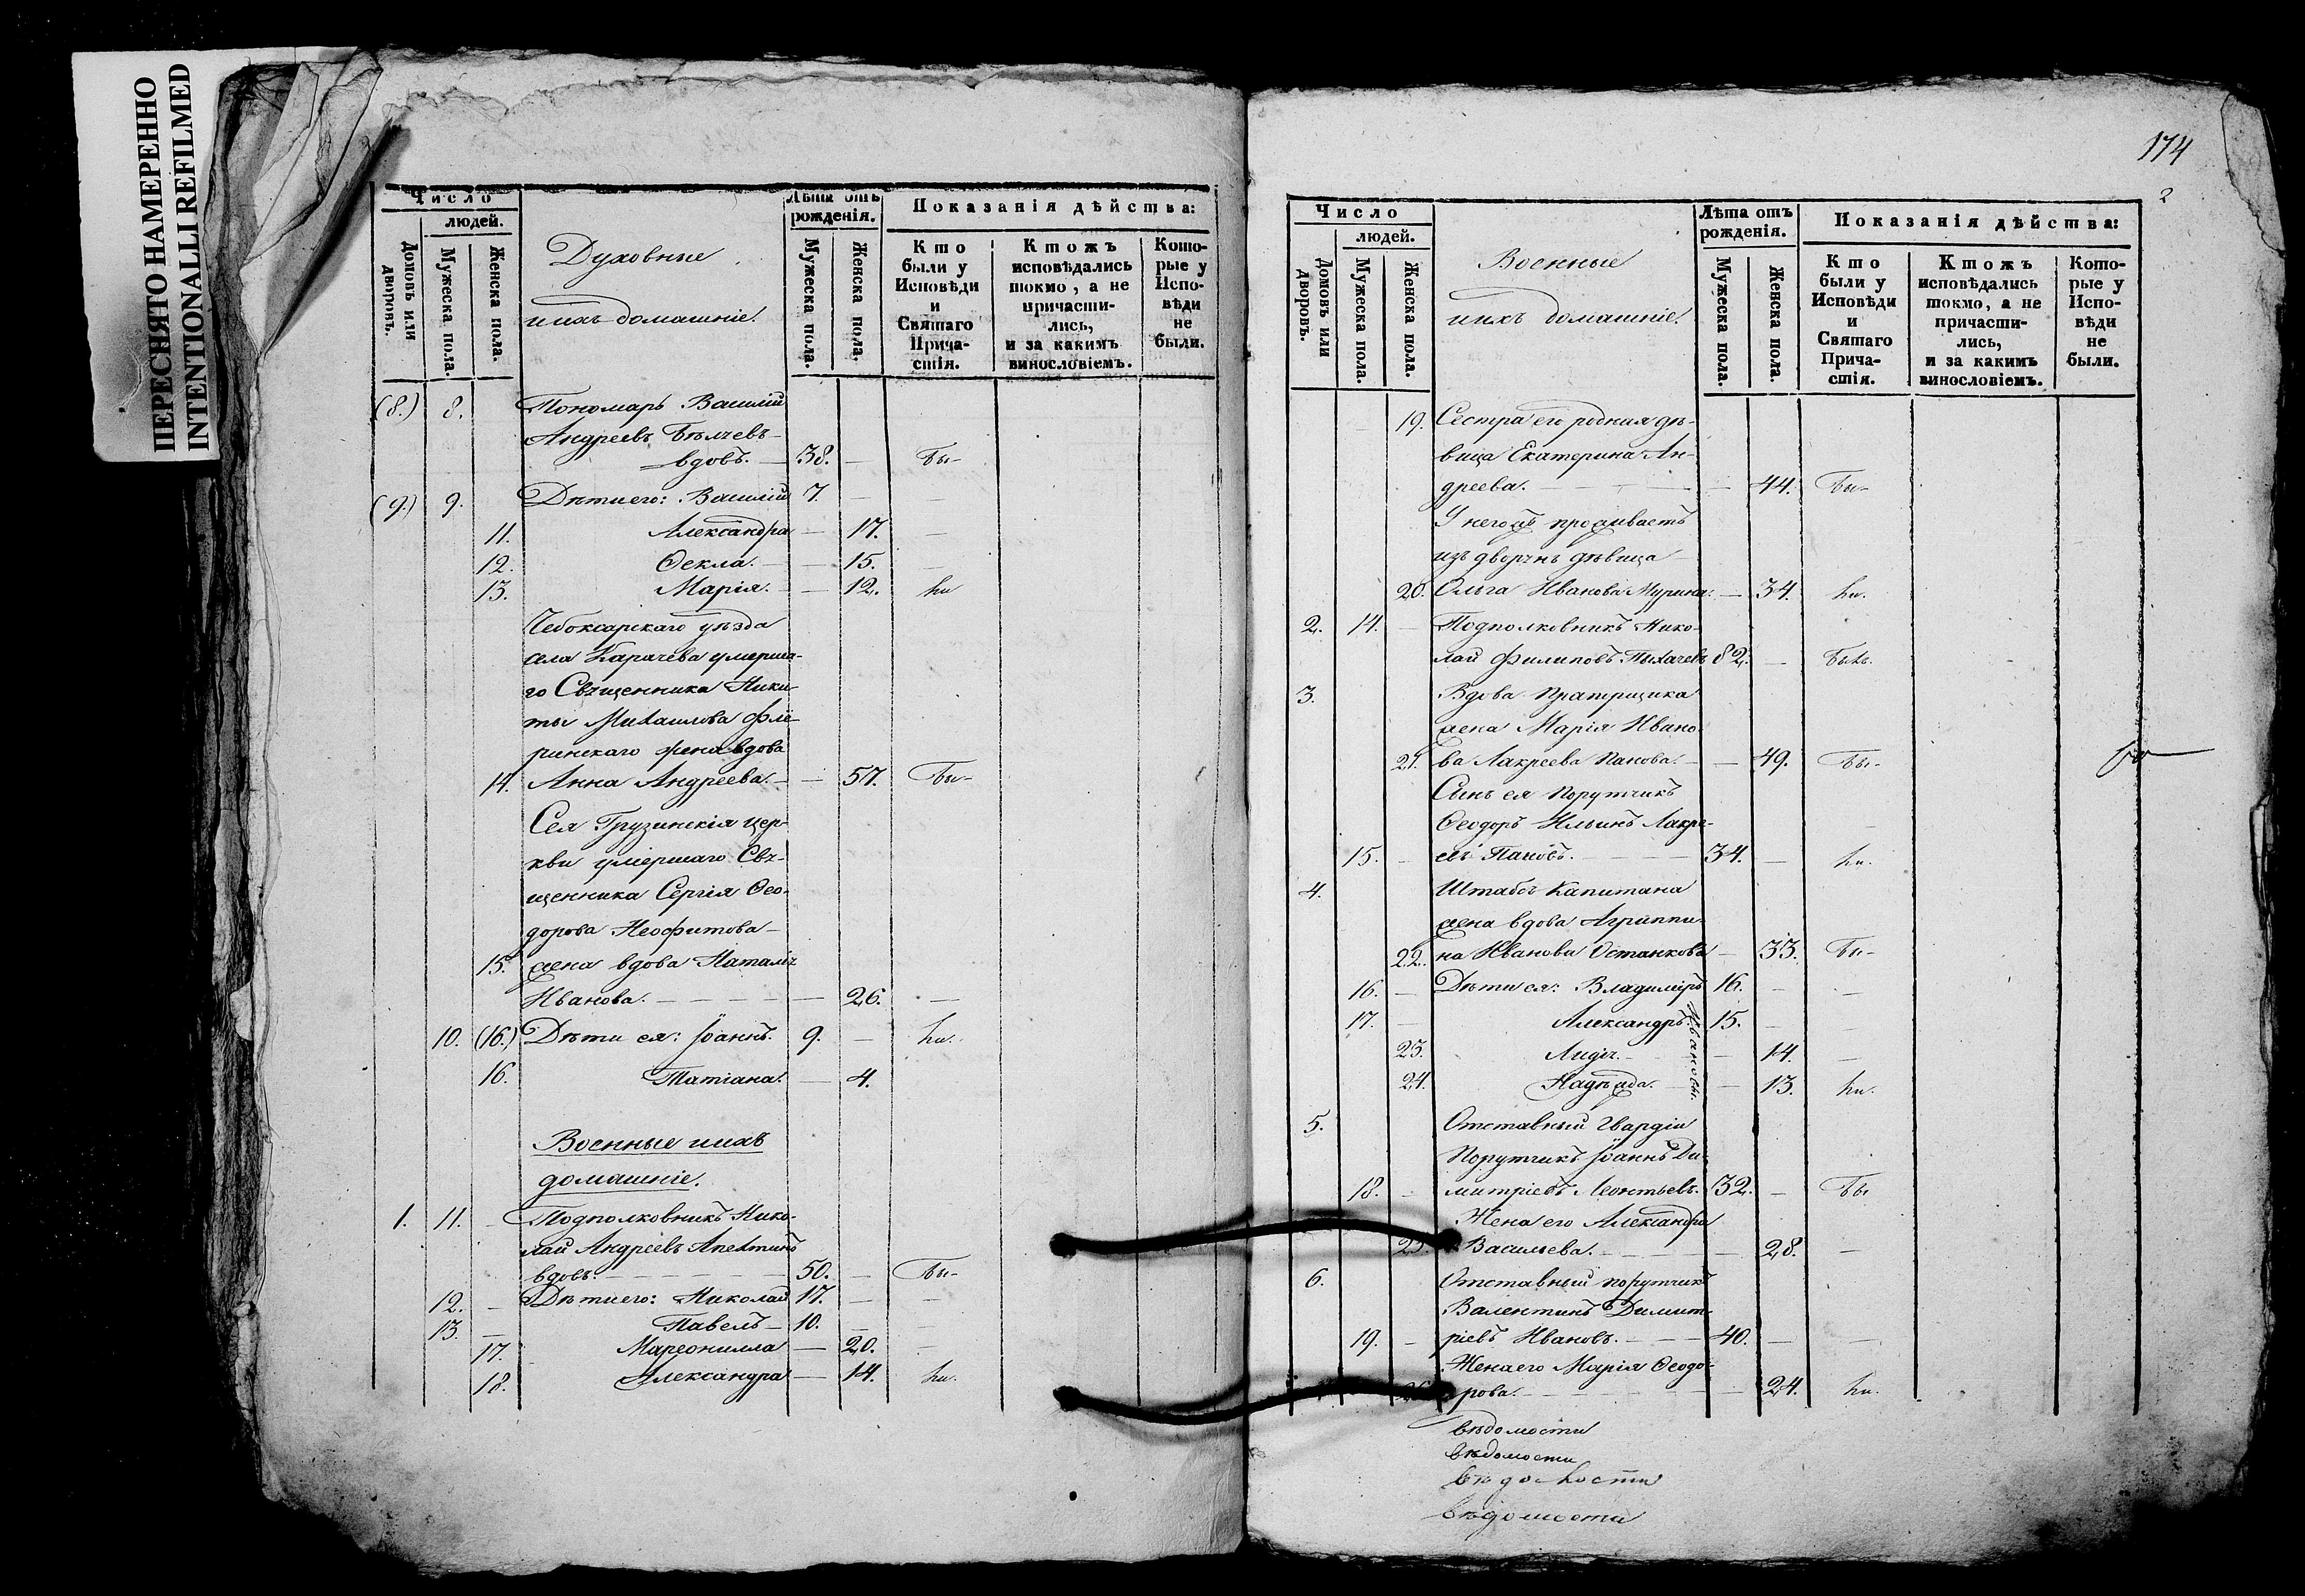 ПЕРЕСНЯТО НАМЕРЕННО
INTENTIONALLI REFILMED
Число
людей.
Домовъ или дворовъ.
Мужеска пола.
Женска пола.
Духовные
ихъ домашніе.
Лѣта отъ рожденія.
Мужеска пола.
Женска пола.
Показанія дѣйства:
Кто были у Исповѣди и Святаго Причастія.
Ктожъ исповѣдались токмо, а не причастились, и за какимъ винословіемъ.
Которые у Исповѣди не были.
(8.) 8. Пономарь Василій
Андреевъ
вдовъ. — 38. — Бы-
(9.) 9. Дѣти его: Василій 7. — —
11. Александра — 17. —
12. Ѳекла. — — 15. —
13. Марія. — — 12. ли
Чебоксарскаго уѣзда
села Карачева умерша-
го Священника Ники-
ты Михаилова
жена вдова
14. Анна Андреева. — — 57. Бы-
Сея Грузинскія цер-
кви умершаго Свя-
щенника Сергія Ѳео-
дорова Неофитова —
15. жена вдова Наталія
Иванова. — — — — 26. —
10. (16.) Дѣти ея: Іоаннъ. 9. — ли.
16. Татіана. — 4.
Военные ихъ
домашніе.
1. 11. — Подполковникъ Нико-
лай Андреевъ Апехтинъ
вдовъ. — — — — 50. — Бы-
12. — Дѣти его: Николай 17. — —
13. — Павелъ — 10. — —
17. Мареонилла — 20. —
18. Александра — 14. ли.
174
2
Число
людей.
Домовъ или дворовъ.
Мужеска пола.
Женска пола.
Военные
ихъ домашніе.
Лѣта отъ рожденія.
Мужеска пола.
Женска пола.
Показанія дѣйства:
Кто были у Исповѣди и Святаго Причастія.
Ктожъ исповѣдались токмо, а не причастились, и за какимъ винословіемъ.
Которые у Исповѣди не были.
19. Сестра его родная дѣ-
вица Екатерина Ан-
дреева. — — — — 44. Бы-
У него же проживаетъ
изъ дворянъ дѣвица —
20. Ольга Иванова Мурина. — 34. ли.
2. 14. — Подполковникъ Нико-
лай Филиповъ Пыхачевъ 82. — Былъ.
3. Вдова Прапорщика
жена Марія Ивано-
21. ва Лакреева Панова. — — 49. Бы-
Сынъ ея Порутчикъ
Ѳеодоръ Ильинъ Лакре-
15. — евъ Пановъ. — — — 34. — ли.
4. Штабсъ Капитана
жена вдова Агриппи-
22. на Иванова Останкова — 33. Бы-
16. — Дѣти ея: Владиміръ 16. — —
17. — Александръ. 15. — —
23. Лидія. — — 14. —
24. Надежда. — — 13. ли.
Ивановы.
5. Отставный Гвардіи
Порутчикъ Іоаннъ Ди-
18. — митріевъ Леонтьевъ. 32. — Бы
Жена его Александра
25. Васильева. — — — 28. —
6. Отставный порутчикъ
Валентинъ Димит-
19. — ріевъ Ивановъ. — — 40. — —
Жена его Марія Ѳеодо-
26. рова. — — — — 24. ли.
вѣдомости
вѣдомости
вѣдомости
вѣдомости